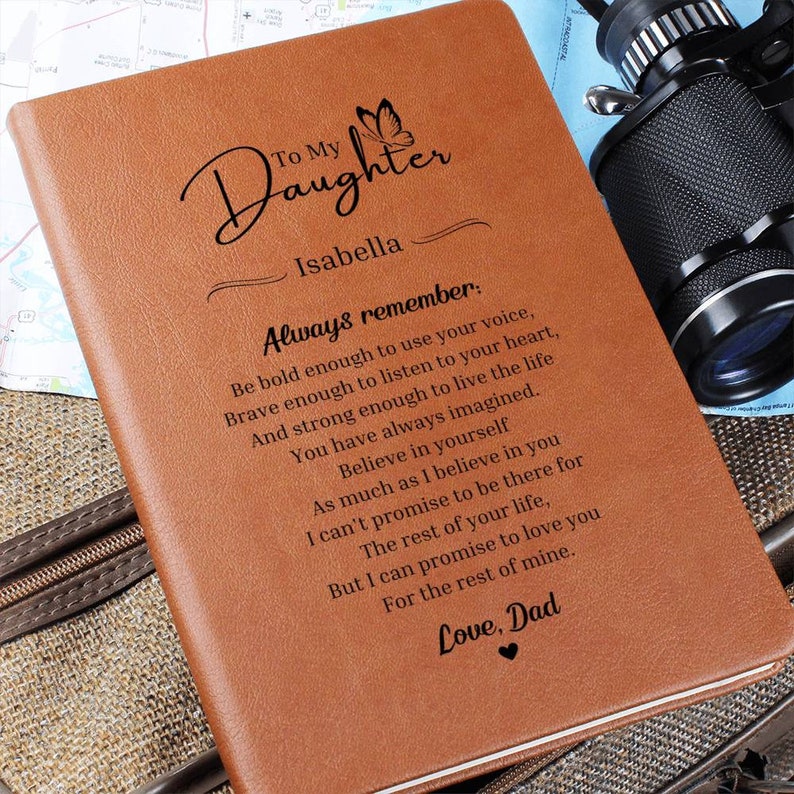 To My
Daughter
Isabella
Always remember:
Be bold enough to use your voice,
Brave enough to listen to your heart,
And strong enough to live the life
You have always imagined.
Believe in yourself
As much as I believe in you
I can't promise to be there for
The rest of your life,
But I can promise to love you
For the rest of mine.
Love, Dad
INTRACOASTAL